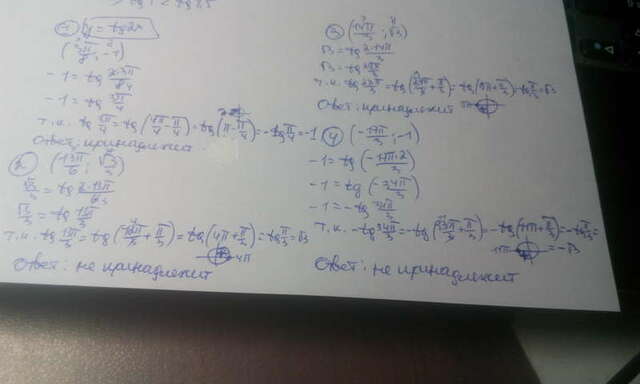 ① y = tg2x
(3π/8 ; -1)
-1 = tg 2·3π/8
-1 = tg 3π/4
т.к. tg 3π/4 = tg(4π/4 - π/4) = tg(π - π/4) = -tg π/4 = -1
Ответ: принадлежит
② (13π/6 ; √3/3)
√3/3 = tg 2·13π/6
√3/3 = tg 13π/3
т.к. tg 13π/3 = tg(12π/3 + π/3) = tg(4π + π/3) = tg π/3 = √3
4π
Ответ: не принадлежит
③ (14π/3 ; √3)
√3 = tg 2·14π/3
√3 = tg 28π/3
Ответ: принадлежит
④ (-17π/3 ; -1)
-1 = tg(-17π·2/3)
-1 = tg(-34π/3)
-1 = -tg 34π/3
т.к. -tg 34π/3 = -tg(33π/3 + π/3) = -tg(11π + π/3) = -tg π/3 =
11π = -√3
Ответ: не принадлежит